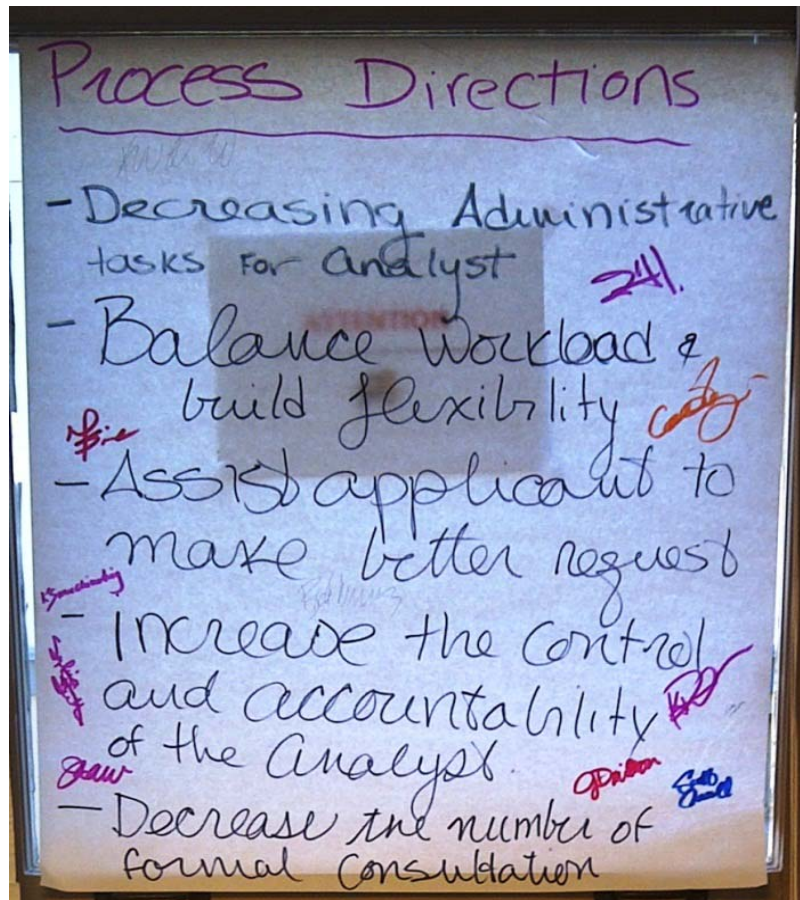 Process Directions
- Decreasing Administrative
tasks for analyst
- Balance workload &
build flexibility
ATTENTION
- Assist applicant to
make better request
- Increase the control
and accountability
of the analyst.
Shaw
- Decrease the number of
formal consultation